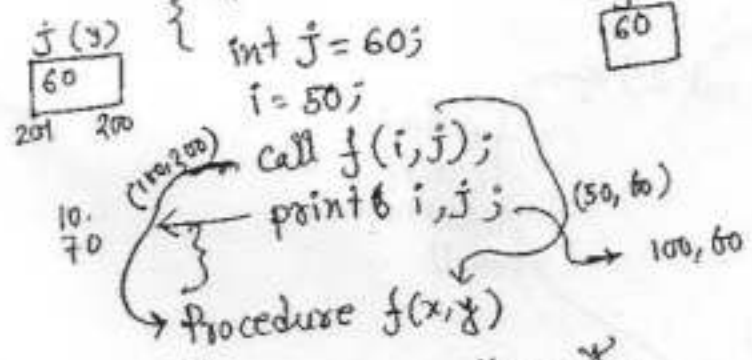 j (y) {
60
201 200
int j = 60;
60
i = 50;
(100,200) call f(i,j);
print i, j;
(50, 60)
10.
70
100, 60
}
Procedure f(x,y)